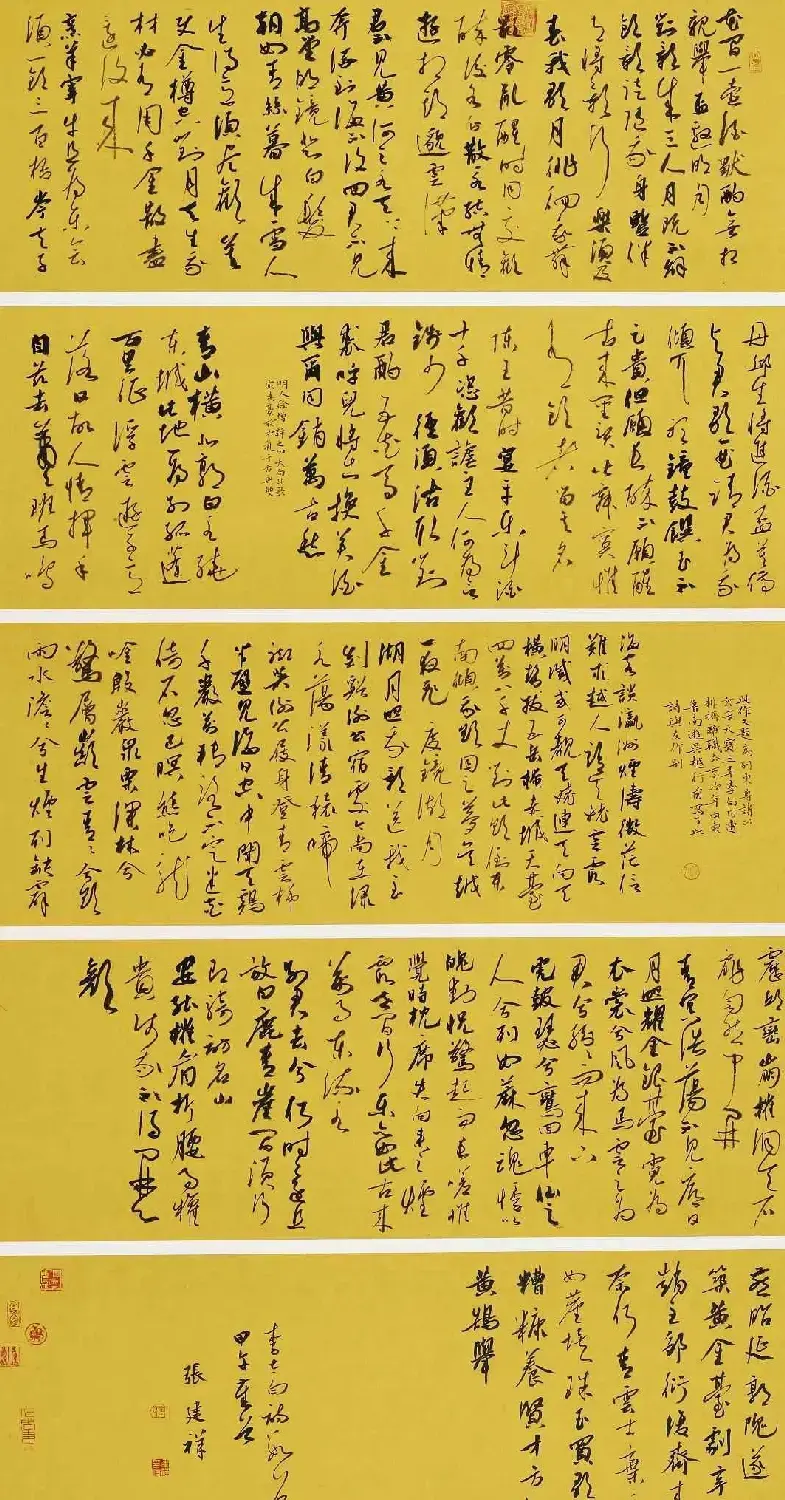 花間一壺酒獨酌無相
親舉杯邀明月
對影成三人月既不解
飲影徒隨我身暫伴
月將影行樂須及
春我歌月徘徊我舞
影零亂醒時同交歡
醉後各分散永結無情
遊相期邈雲漢
君不見黃河之水天上來
奔流到海不復回君不見
高堂明鏡悲白髮
朝如青絲暮成雪人
生得意須盡歡莫
使金樽空對月天生我
材必有用千金散盡
還復來
烹羊宰牛且為樂會
須一飲三百杯岑夫子
丹邱生將進酒杯莫停
與君歌一曲請君為我
傾耳聽鐘鼓饌玉不
足貴但願長醉不願醒
古來聖賢皆寂寞惟
有飲者留其名
陳王昔時宴平樂斗酒
十千恣歡謔主人何為言
錢少徑須沽取對
君酌五花馬千金
裘呼兒將出換美酒
與爾同銷萬古愁
青山橫北郭白水繞
東城此地一為別孤蓬
萬里征浮雲遊子意
落日故人情揮手
自茲去蕭蕭班馬鳴
海客談瀛洲煙濤微茫信
難求越人語天姥雲霞
明滅或可覩天姥連天向天
橫勢拔五岳掩赤城天臺
四萬八千丈對此欲倒東
南傾我欲因之夢吳越
一夜飛度鏡湖月
湖月照我影送我至
剡谿謝公宿處今尚在淥
水蕩漾清猿啼
腳著謝公屐身登青雲梯
半壁見海日空中聞天雞
千巖萬轉路不定迷花
倚石忽已暝熊咆龍
吟殷巖泉慄深林兮
驚層巔雲青青兮欲
雨水澹澹兮生煙列缺霹
靂邱巒崩摧洞天石
扉訇然中開
青冥浩蕩不見底日
月照耀金銀臺霓為
衣裳兮風為馬雲之
君兮紛紛而來下
虎鼓瑟兮鸞回車仙之
人兮列如麻忽魂悸以
魄動怳驚起而長嗟惟
覺時枕席失向來之煙
霞世間行樂亦如此古來
萬事東流水
別君去兮何時還且
放白鹿青崖間須行
即騎訪名山
安能摧眉折腰事權
貴使我不得開心
顏
燕昭延郭隗遂
築黃金臺劇辛
趙至鄒衍復齊來
奈何青雲士棄
如塵埃珠玉買歌
糟糠養賢才方
黃鶴舉
李太白詩數首
甲午
張建祥